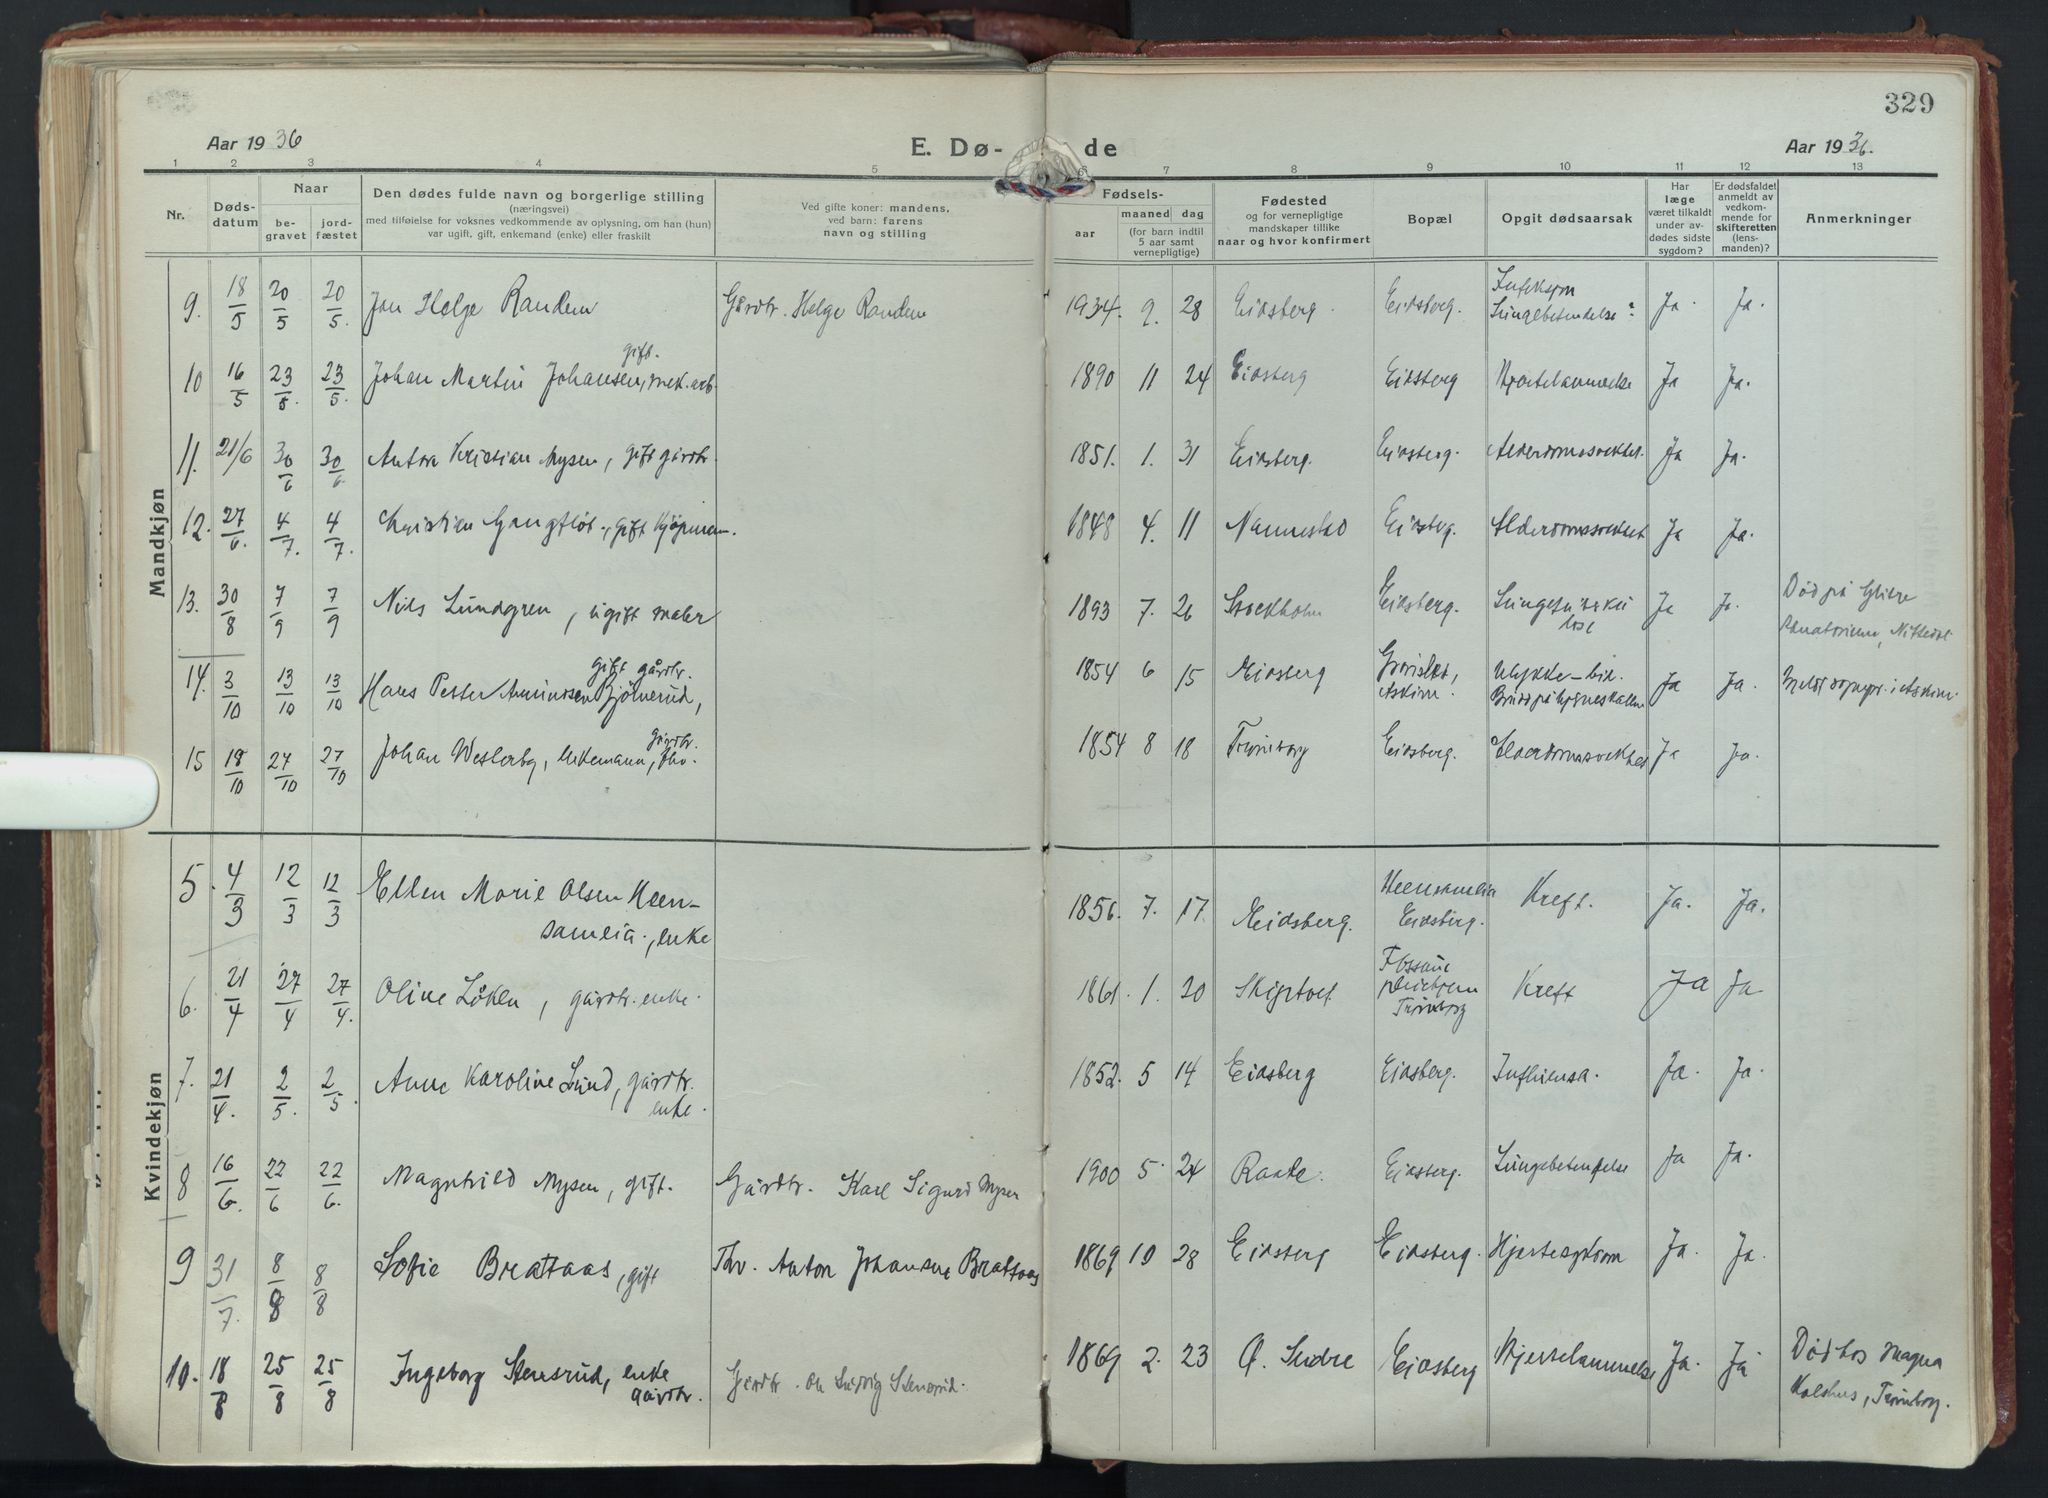 329
Aar 1936
E. Dø-
de
Aar 1936.
1 2 3 4 5 6 7 8 9 10 11 12 13
Nr.
Døds-
datum
Naar
be-
gravet
jord-
fæstet
Den dødes fulde navn og borgerlige stilling
(næringsvei)
med tilføielse for voksnes vedkommende av oplysning, om han (hun)
var ugift, gift, enkemand (enke) eller fraskilt
Ved gifte koner: mandens,
ved barn: farens
navn og stilling
Fødsels-
aar
maaned
dag
(for barn indtil
5 aar samt
vernepligtige)
Fødested
og for vernepligtige
mandskaper tillike
naar og hvor konfirmert
Bopæl
Opgit dødsaarsak
Har
læge
været tilkaldt
under av-
dødes sidste
sygdom?
Er dødsfaldet
anmeldt av
vedkom-
mende for
skifteretten
(lens-
manden)?
Anmerkninger
Mandkjøn
9. 18/5 20/5 20/5. Jon Helge Randem Gårdbr. Helge Randem 1934. 9. 28 Eidsberg. Eidsberg. Infeksjon
Lungebetendelse? Ja. Ja.
gift.
10 16/5 23/5. 23/5. Johan Martin Johansen, mek. arb. 1890 11 24 Eidsberg Eidsberg Hjertelammelse Ja Ja.
11. 21/6 30/6 30/6 Anton Kristian Mysen, gift gårdbr. 1851. 1. 31 Eidsberg. Eidsberg. Alderdomssvekket. Ja Ja.
12. 27/6. 4/7. 4/7. Christian Gangfløt, gift kjøpmann. 1848 4. 11 Nannestad Eidsbg. Alderdomssvekket Ja Ja.
13. 30/8 7/9 7/9 Nils Lundgren, ugift maler 1893 7. 26 Stockholm Eidsberg. Lungetuberku
lose Ja Ja. Død på Glitre
sanatorium, Nittedal
gift gårdbr.
14. 3/10 13/10 13/10 Hans Petter Amundsen Bjølnerud, 1854 6 15 Eidsberg
Askim. Ulykke-bil.
Brudd på hjerneskallen Ja Ja.
gårdbr.
15 18/10 27/10 27/10 Johan Westerby, enkemann, fhv. 1854 8 18 Trømborg Eidsberg. Alderdomssvekket Ja Ja.
Kvindekjøn
5. 4/3 12/3 12/3 Ellen Marie Olsen Heen-
sameia., enke 1856. 7. 17. Eidsberg. Heensameia
Eidsberg. Kreft. Ja. Ja.
6. 21/4 27/4 27/4. Oline Løken, gårdbr. enke. 1861. 1. 20 Skiptvet Fossum
pleiehjem
Trømborg Kreft Ja Ja
7. 21/4. 2/5. 2/5 Anne Karoline Lund, gårdbr.
enke. 1852. 5 14 Eidsberg Eidsberg. Influensa. Ja. Ja.
8 16/6. 22/6 22/6. Magnhild Mysen, gift. Gårdbr. Karl Sigurd Mysen 1900 5. 24 Raade. Eidsberg. Lungebetendelse Ja Ja.
9 31/7. 8/8 8/8 Sofie Brataas, gift Fhv. Anton Johansen Brattaas 1869 10 28 Eidsberg Eidsberg. Hjertesygdom Ja. Ja.
10. 18/8 25/8 25/8 Ingeborg Stensrud, enke
gårdbr. Gårdbr. Ole Ludvig Stensrud. 1869 2. 23 Ø. Slidre Eidsberg Hjertelammelse Ja. Ja Død hos Magna
Kolshus, Trømborg.